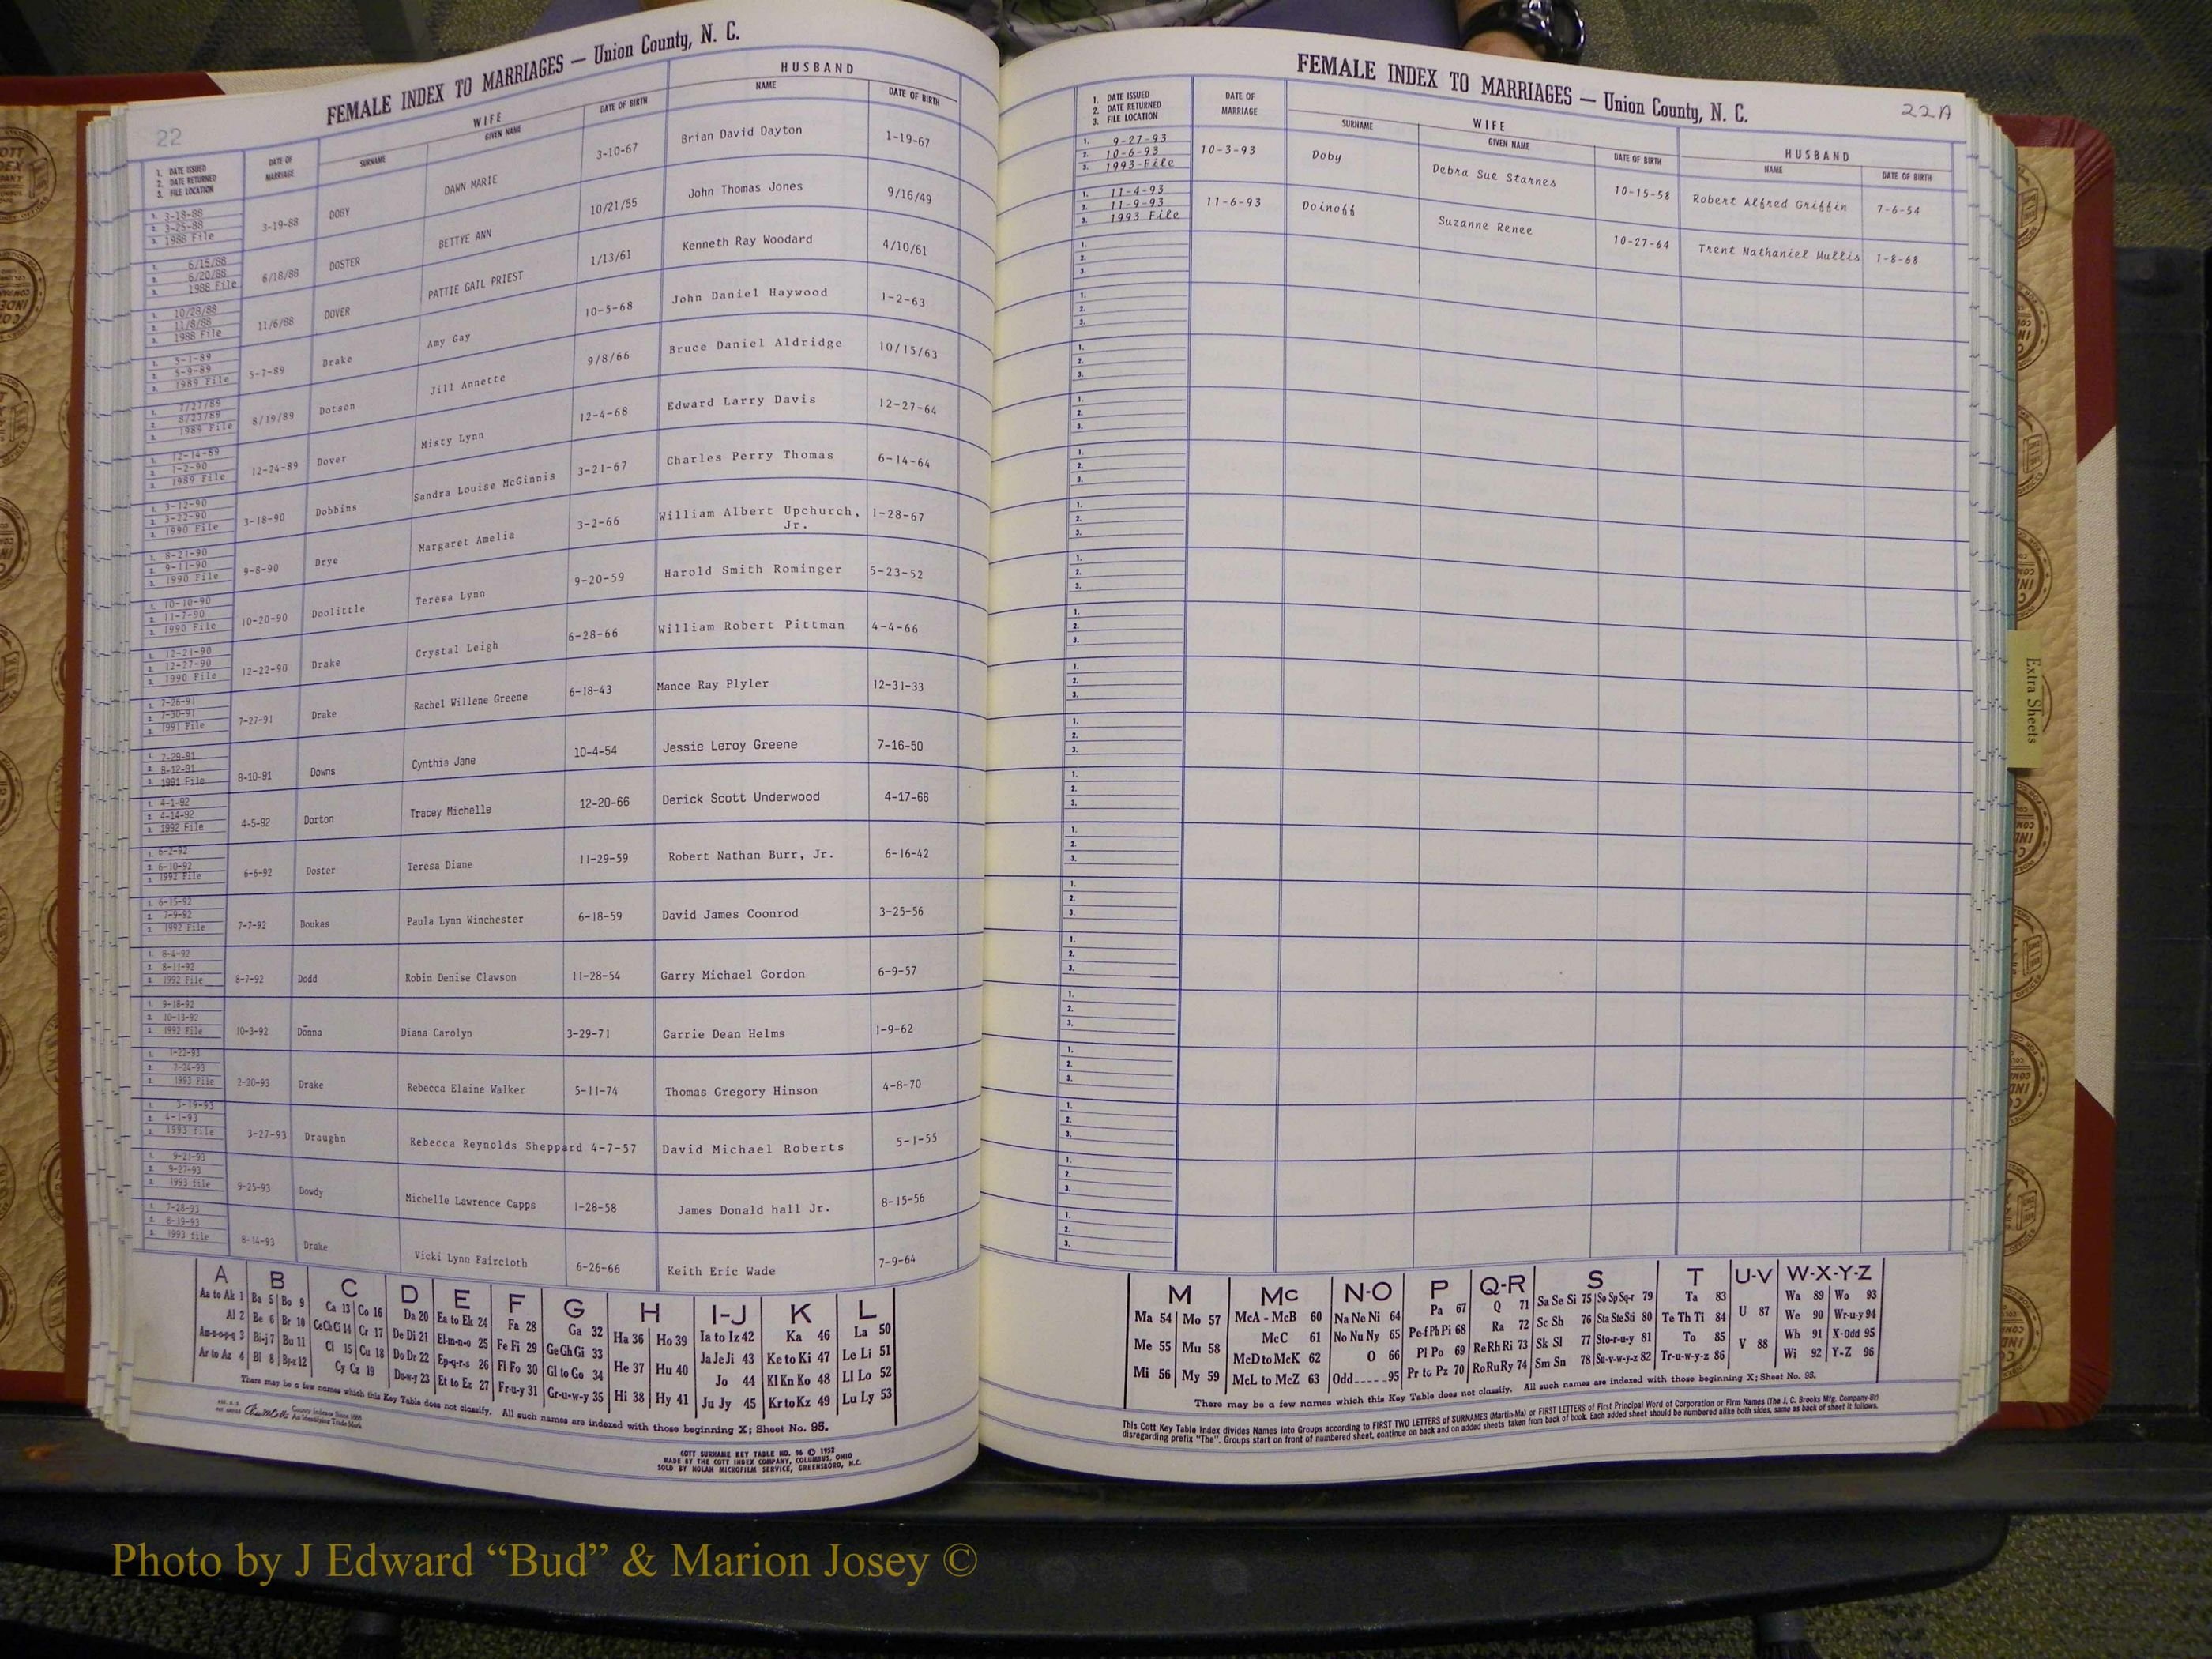 22
FEMALE INDEX TO MARRIAGES — Union County, N. C.
1. DATE ISSUED 2. DATE RETURNED 3. FILE LOCATION
DATE OF MARRIAGE
WIFE
SURNAME GIVEN NAME DATE OF BIRTH
HUSBAND
NAME DATE OF BIRTH
1. 3-18-88 2. 3-25-88 3. 1988 File 3-19-88 DOBY DAWN MARIE 3-10-67 Brian David Dayton 1-19-67
1. 6/15/88 2. 6/20/88 3. 1988 File 6/18/88 DOSTER BETTYE ANN 10/21/55 John Thomas Jones 9/16/49
1. 10/28/88 2. 11/8/88 3. 1988 File 11/6/88 DOVER PATTIE GAIL PRIEST 1/13/61 Kenneth Ray Woodard 4/10/61
1. 5-1-89 2. 5-9-89 3. 1989 File 5-7-89 Drake Amy Gay 10-5-68 John Daniel Haywood 1-2-63
1. 7/27/89 2. 8/23/89 3. 1989 File 8/19/89 Dotson Jill Annette 9/8/66 Bruce Daniel Aldridge 10/15/63
1. 12-14-89 2. 1-2-90 3. 1989 File 12-24-89 Dover Misty Lynn 12-4-68 Edward Larry Davis 12-27-64
1. 3-12-90 2. 3-22-90 3. 1990 File 3-18-90 Dobbins Sandra Louise McGinnis 3-21-67 Charles Perry Thomas 6-14-64
1. 8-21-90 2. 9-11-90 3. 1990 File 9-8-90 Drye Margaret Amelia 3-2-66 William Albert Upchurch, Jr. 1-28-67
1. 10-10-90 2. 11-7-90 3. 1990 File 10-20-90 Doolittle Teresa Lynn 9-20-59 Harold Smith Rominger 5-23-52
1. 12-21-90 2. 12-27-90 3. 1990 File 12-22-90 Drake Crystal Leigh 6-28-66 William Robert Pittman 4-4-66
1. 7-26-91 2. 7-30-91 3. 1991 File 7-27-91 Drake Rachel Willene Greene 6-18-43 Mance Ray Plyler 12-31-33
1. 7-29-91 2. 8-12-91 3. 1991 File 8-10-91 Downs Cynthia Jane 10-4-54 Jessie Leroy Greene 7-16-50
1. 4-1-92 2. 4-14-92 3. 1992 File 4-5-92 Dorton Tracey Michelle 12-20-66 Derick Scott Underwood 4-17-66
1. 6-2-92 2. 6-10-92 3. 1992 File 6-6-92 Doster Teresa Diane 11-29-59 Robert Nathan Burr, Jr. 6-16-42
1. 6-15-92 2. 7-9-92 3. 1992 File 7-7-92 Doukas Paula Lynn Winchester 6-18-59 David James Coonrod 3-25-56
1. 8-4-92 2. 8-11-92 3. 1992 File 8-7-92 Dodd Robin Denise Clawson 11-28-54 Garry Michael Gordon 6-9-57
1. 9-18-92 2. 10-13-92 3. 1992 File 10-3-92 Donna Diana Carolyn 3-29-71 Garrie Dean Helms 1-9-62
1. 1-22-93 2. 2-24-93 3. 1993 File 2-20-93 Drake Rebecca Elaine Walker 5-11-74 Thomas Gregory Hinson 4-8-70
1. 3-19-93 2. 4-1-93 3. 1993 file 3-27-93 Draughn Rebecca Reynolds Sheppard 4-7-57 David Michael Roberts 5-1-55
1. 9-21-93 2. 9-27-93 3. 1993 file 9-25-93 Dowdy Michelle Lawrence Capps 1-28-58 James Donald hall Jr. 8-15-56
1. 7-28-93 2. 8-19-93 3. 1993 file 8-14-93 Drake Vicki Lynn Faircloth 6-26-66 Keith Eric Wade 7-9-64
A B C D E F G H I-J K L
Aa to Ak 1 Ba 5 Bo 9 Ca 13 Co 16 Da 20 Ea to Ek 24 Fa 28 Ga 32 Ha 36 Ho 39 Ia to Iz 42 Ka 46 La 50
Al 2 Be 6 Br 10 Ce Ch Ci 14 Cr 17 De Di 21 El-m-n-o 25 Fe Fi 29 Ge Gh Gi 33 He 37 Hu 40 Ja Je Ji 43 Ke to Ki 47 Le Li 51
Am-n-o-p-q 3 Bi-j 7 Bu 11 Cl 15 Cu 18 Do Dr 22 Ep-q-r-s 26 Fl Fo 30 Gl to Go 34 Hi 38 Hy 41 Jo 44 Kl Kn Ko 48 Ll Lo 52
Ar to Az 4 Bl 8 By-z 12 Cy Cz 19 Du-w-y 23 Et to Ez 27 Fr-u-y 31 Gr-u-w-y 35 Ju Jy 45 Kr to Kz 49 Lu Ly 53
There may be a few names which this Key Table does not classify. All such names are indexed with those beginning X; Sheet No. 95.
County Indexes Since 1888
An Identifying Trade Mark
COTT SURNAME KEY TABLE NO. 96 © 1952
MADE BY THE COTT INDEX COMPANY, COLUMBUS, OHIO
SOLD BY NOLAN MICROFILM SERVICE, GREENSBORO, N.C.
FEMALE INDEX TO MARRIAGES — Union County, N. C.
22A
1. DATE ISSUED 2. DATE RETURNED 3. FILE LOCATION
DATE OF MARRIAGE
WIFE
SURNAME GIVEN NAME DATE OF BIRTH
HUSBAND
NAME DATE OF BIRTH
1. 9-27-93 2. 10-6-93 3. 1993 File 10-3-93 Doby Debra Sue Starnes 10-15-58 Robert Alfred Griffin 7-6-54
1. 11-4-93 2. 11-9-93 3. 1993 File 11-6-93 Doinoff Suzanne Renee 10-27-64 Trent Nathaniel Mullis 1-8-68
Extra Sheets
M Mc N-O P Q-R S T U-V W-X-Y-Z
Ma 54 Mo 57 McA - McB 60 Na Ne Ni 64 Pa 67 Q 71 Sa Se Si 75 So Sp Sq-r 79 Ta 83 U 87 Wa 89 Wo 93
Me 55 Mu 58 McC 61 No Nu Ny 65 Pe-f Ph Pi 68 Ra 72 Sc Sh 76 Sta Ste Sti 80 Te Th Ti 84 V 88 We 90 Wr-u-y 94
Mi 56 My 59 McD to McK 62 O 66 Pl Po 69 Re Rh Ri 73 Sk Sl 77 Sto-r-u-y 81 To 85 Wh 91 X-Odd 95
McL to McZ 63 Odd 95 Pr to Pz 70 Ro Ru Ry 74 Sm Sn 78 Su-v-w-y-z 82 Tr-u-w-y-z 86 Wi 92 Y-Z 96
There may be a few names which this Key Table does not classify. All such names are indexed with those beginning X; Sheet No. 95.
This Cott Key Table Index divides Names into Groups according to FIRST TWO LETTERS of SURNAMES (Martin-Ma) or FIRST LETTERS of First Principal Word of Corporation or Firm Names (The J. C. Brooks Mfg. Company-Br)
disregarding prefix "The". Groups start on front of numbered sheet, continue on back and on added sheets taken from back of book. Each added sheet should be numbered alike both sides, same as back of sheet it follows.
Photo by J Edward “Bud” & Marion Josey ©